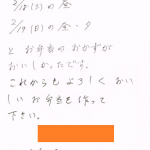 2/18(土)の昼
2/19(日)の昼・夕
と お弁当のおかずが
おいしかったです。
これからもよろしくおい
しいお弁当を作って
下さい。